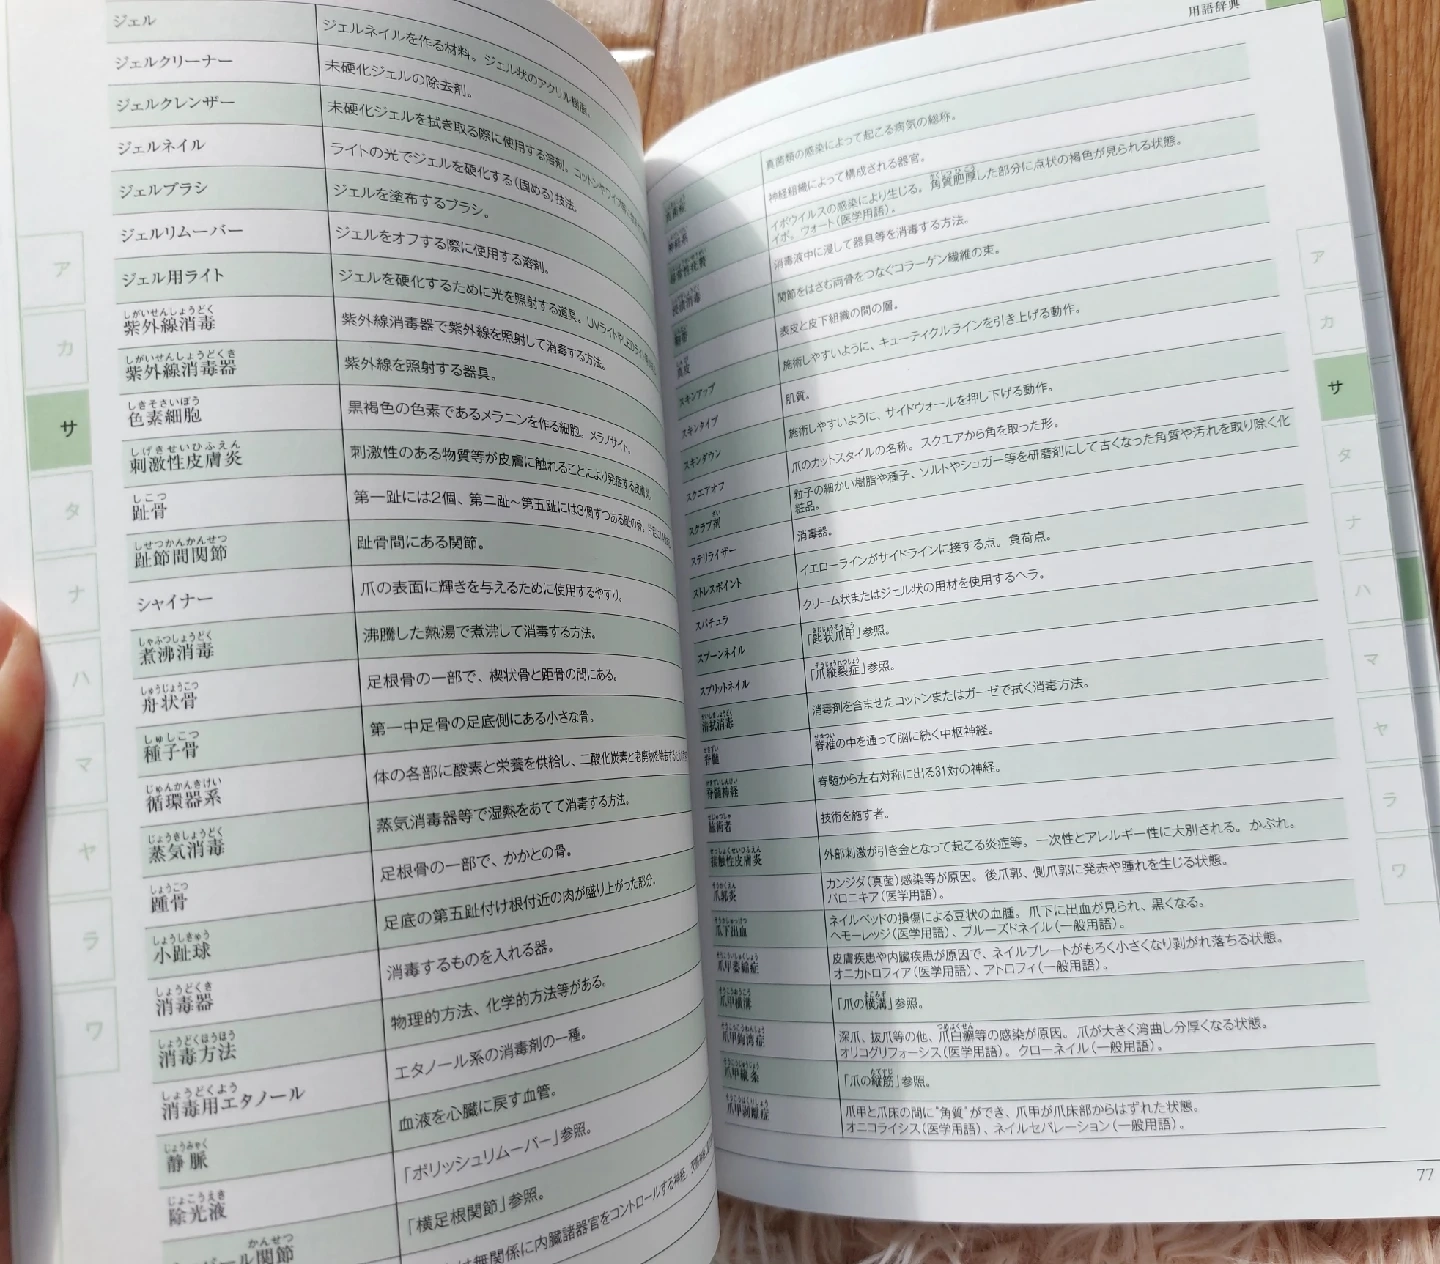 ジェル
ジェルネイルを作る材料。ジェル状のアクリル樹脂。
ジェルクリーナー
未硬化ジェルの除去剤。
ジェルクレンザー
未硬化ジェルを拭き取る際に使用する溶剤。
ジェルネイル
ライトの光でジェルを硬化する(固める)技法。
ジェルブラシ
ジェルを塗布するブラシ。
ジェルリムーバー
ジェルをオフする際に使用する溶剤。
ジェル用ライト
ジェルを硬化するために光を照射する道具。
しがいせんしょうどく
紫外線消毒
紫外線消毒器で紫外線を照射して消毒する方法。
しがいせんしょうどくき
紫外線消毒器
紫外線を照射する器具。
しきそさいぼう
色素細胞
黒褐色の色素であるメラニンを作る細胞。メラノサイト。
しげきせいひふえん
刺激性皮膚炎
刺激性のある物質等が皮膚に触れることにより発症する
しこつ
趾骨
第一趾には2個、第二趾~第五趾には3個ずつある趾の骨。
しせつかんかんせつ
趾節間関節
趾骨間にある関節。
シャイナー
爪の表面に輝きを与えるために使用するやすり。
しゃふつしょうどく
煮沸消毒
沸騰した熱湯で煮沸して消毒する方法。
しゅうじょうこつ
舟状骨
足根骨の一部で、楔状骨と距骨の間にある。
しゅしこつ
種子骨
第一中足骨の足底側にある小さな骨。
じゅんかんきけい
循環器系
体の各部に酸素と栄養を供給し、二酸化炭素と老廃物を
じょうきしょうどく
蒸気消毒
蒸気消毒器等で湿熱をあてて消毒する方法。
しょうこつ
踵骨
足根骨の一部で、かかとの骨。
しょうしきゅう
小趾球
足底の第五趾付け根付近の肉が盛り上がった部分。
しょうどくき
消毒器
消毒するものを入れる器。
しょうどくほうほう
消毒方法
物理的方法、化学的方法等がある。
しょうどくよう
消毒用エタノール
エタノール系の消毒剤の一種。
じょうみゃく
静脈
血液を心臓に戻す血管。
じょこうえき
除光液
「ポリッシュリムーバー」参照。
かんせつ
ール関節
「横足根関節」参照。
は無関係に内臓諸器官をコントロールする神経。
ア
カ
サ
タ
ナ
ハ
マ
ヤ
ラ
ワ
用語辞典
真菌類の感染によって起こる病気の総称。
神経系
神経組織によって構成される器官。
イボウイルスの感染により生じる。角質肥厚した部分に点状の褐色が見られる状態。
イボ。ウォート(医学用語)。
消毒液中に浸して器具等を消毒する方法。
靭帯
関節をはさむ両骨をつなぐコラーゲン繊維の束。
真皮
表皮と皮下組織の間の層。
スキンアップ
施術しやすいように、キューティクルラインを引き上げる動作。
スキンタイプ
肌質。
スキンダウン
施術しやすいように、サイドウォールを押し下げる動作。
スクエアオフ
爪のカットスタイルの名称。スクエアから角を取った形。
スクラブ剤
粒子の細かい樹脂や種子、ソルトやシュガー等を研磨剤にして古くなった角質や汚れを取り除く化
粧品。
ステリライザー
消毒器。
ストレスポイント
イエローラインがサイドラインに接する点。負荷点。
スパチュラ
クリーム状またはジェル状の用材を使用するヘラ。
スプーンネイル
「匙状爪甲」参照。
スプリットネイル
「爪縦裂症」参照。
清拭消毒
消毒剤を含ませたコットンまたはガーゼで拭く消毒方法。
脊髄
脊椎の中を通って脳に続く中枢神経。
脊髄神経
脊髄から左右対称に出る31対の神経。
施術者
技術を施す者。
接触性皮膚炎
外部刺激が引き金となって起こる炎症等。一次性とアレルギー性に大別される。かぶれ。
爪郭炎
カンジダ(真菌)感染等が原因。後爪郭、側爪郭に発赤や腫れを生じる状態。
パロニキア(医学用語)。
爪下出血
ネイルベッドの損傷による豆状の血腫。爪下に出血が見られ、黒くなる。
ヘモーレッジ(医学用語)、ブルーズドネイル(一般用語)。
爪甲萎縮症
皮膚疾患や内臓疾患が原因で、ネイルプレートがもろく小さくなり剥がれ落ちる状態。
オニカトロフィア(医学用語)、アトロフィ(一般用語)。
爪甲横溝
「爪の横溝」参照。
爪甲鉤湾症
深爪、抜爪等の他、爪白癬等の感染が原因。爪が大きく湾曲し分厚くなる状態。
オリコグリフォーシス(医学用語)。クローネイル(一般用語)。
爪甲縦条
「爪の縦筋」参照。
爪甲剥離症
爪甲と爪床の間に“角質”ができ、爪甲が爪床部からはずれた状態。
オニコライシス(医学用語)、ネイルセパレーション(一般用語)。
ア
カ
サ
タ
ナ
ハ
マ
ヤ
ラ
ワ
77